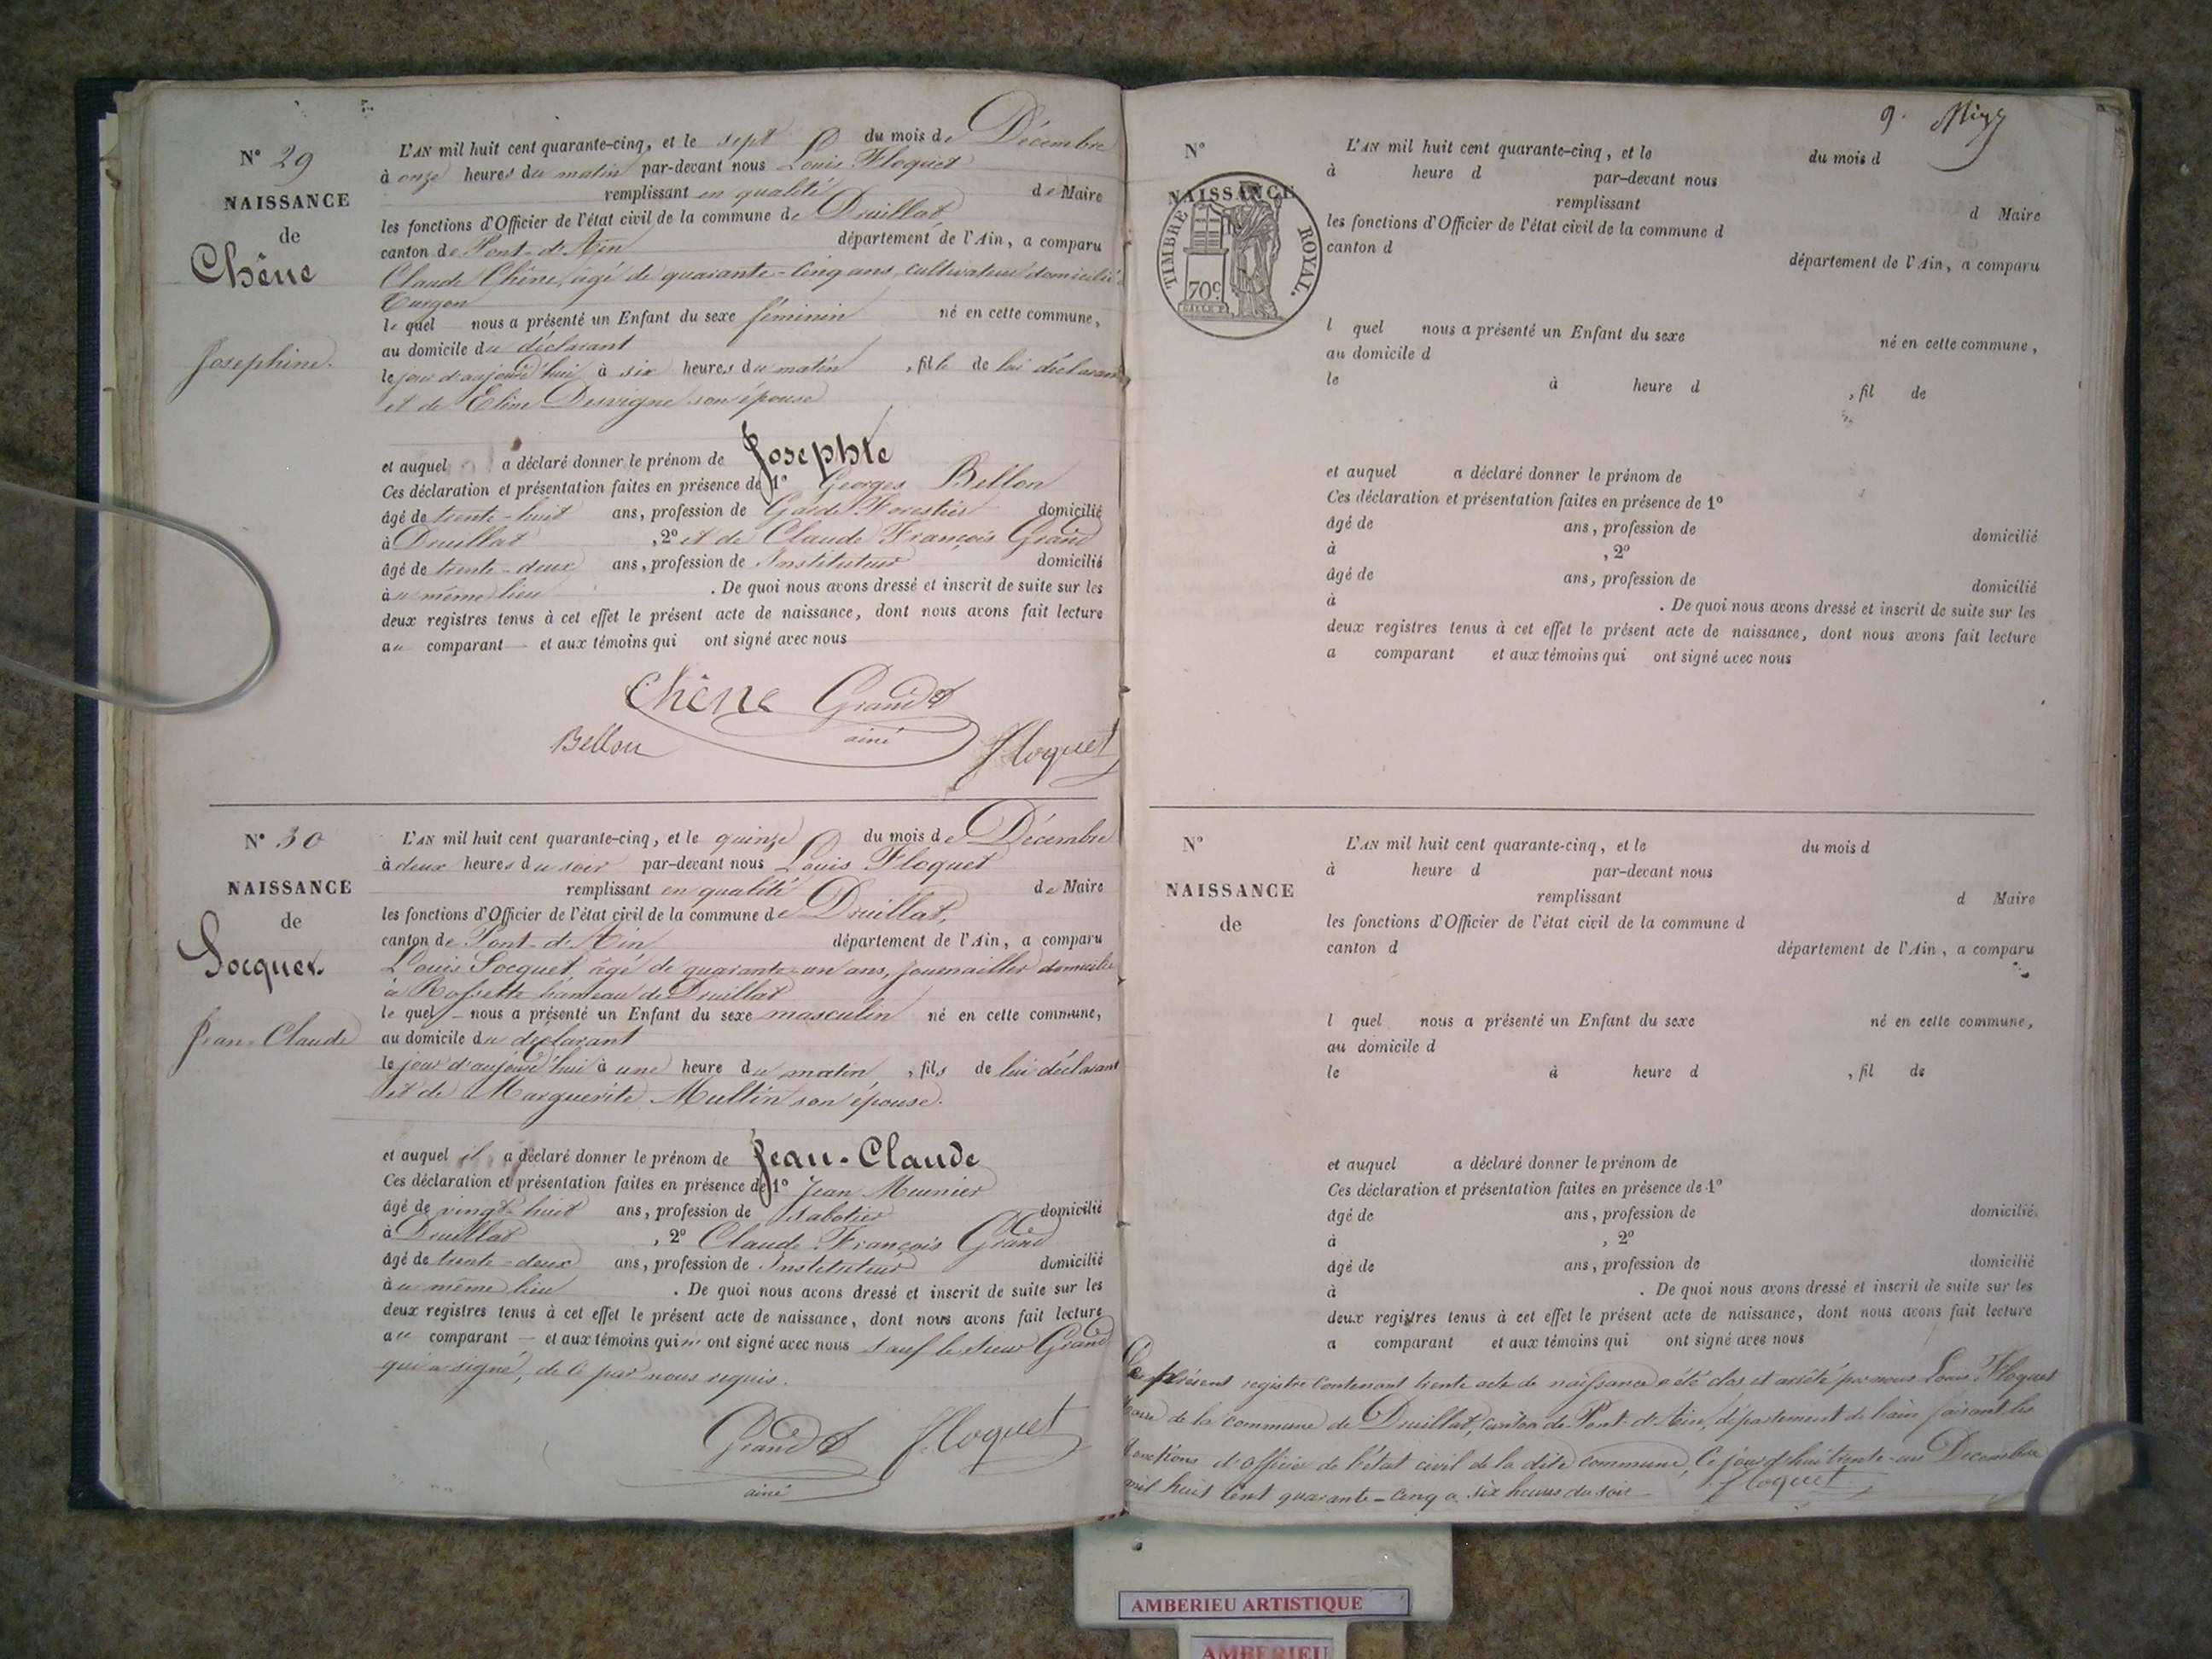 N° 29
NAISSANCE
de
Chêne
Josephine.
L'AN mil huit cent quarante-cinq, et le sept du mois de Décembre
à onze heures du matin par-devant nous Louis Floquet
remplissant en qualité de Maire
les fonctions d'Officier de l'état civil de la commune de Druillat
canton de Pont-d'Ain département de l'Ain, a comparu
Claude Chêne, âgé de quarante-cinq ans, cultivateur domicilié
Turgon
le quel nous a présenté un Enfant du sexe féminin né en cette commune,
au domicile du déclarant
le jour d'aujourd'hui à six heures du matin, fille de lui déclarant
et de Eline Desvigne son épouse
et auquel a déclaré donner le prénom de Josephte
Ces déclaration et présentation faites en présence de 1° Georges Bellon
âgé de trente-huit ans, profession de Garde Forestier domicilié
à Druillat, 2° et de Claude François Grand
âgé de trente-deux ans, profession de Instituteur domicilié
au même lieu. De quoi nous avons dressé et inscrit de suite sur les
deux registres tenus à cet effet le présent acte de naissance, dont nous avons fait lecture
au comparant — et aux témoins qui ont signé avec nous
Chêne Grand
ainé
Bellon Floquet
N° 30
NAISSANCE
de
Socquet.
Jean-Claude
L'AN mil huit cent quarante-cinq, et le quinze du mois de Décembre
à deux heures du soir par-devant nous Louis Floquet
remplissant en qualité de Maire
les fonctions d'Officier de l'état civil de la commune de Druillat,
canton de Pont-d'Ain département de l'Ain, a comparu
Louis Socquet, âgé de quarante-un ans, jouenailler domicilié
à Rossette hameau de Druillat
le quel nous a présenté un Enfant du sexe masculin né en cette commune,
au domicile du déclarant
le jour d'aujourd'hui à une heure du matin, fils de lui déclarant
et de Marguerite Multin son épouse.
et auquel il a déclaré donner le prénom de Jean-Claude
Ces déclaration et présentation faites en présence de 1° Jean Meunier
âgé de vingt-huit ans, profession de Sabotier domicilié
à Druillat, 2° Claude François Grand
âgé de trente-deux ans, profession de Instituteur domicilié
au même lieu. De quoi nous avons dressé et inscrit de suite sur les
deux registres tenus à cet effet le présent acte de naissance, dont nous avons fait lecture
au comparant — et aux témoins qui n'ont signé avec nous sauf le sieur Grand
qui a signé, de ce par nous requis.
Grand Floquet
ainé
9.
N°
NAISSANCE
TIMBRE ROYAL.
70c
L'AN mil huit cent quarante-cinq, et le du mois d
à heure d par-devant nous
remplissant d Maire
les fonctions d'Officier de l'état civil de la commune d
canton d département de l'Ain, a comparu
l quel nous a présenté un Enfant du sexe né en cette commune,
au domicile d
le à heure d , fil de
et auquel a déclaré donner le prénom de
Ces déclaration et présentation faites en présence de 1°
âgé de ans, profession de domicilié
à , 2°
âgé de ans, profession de domicilié
à . De quoi nous avons dressé et inscrit de suite sur les
deux registres tenus à cet effet le présent acte de naissance, dont nous avons fait lecture
a comparant et aux témoins qui ont signé avec nous
N°
NAISSANCE
de
L'AN mil huit cent quarante-cinq, et le du mois d
à heure d par-devant nous
remplissant d Maire
les fonctions d'Officier de l'état civil de la commune d
canton d département de l'Ain, a comparu
l quel nous a présenté un Enfant du sexe né en cette commune,
au domicile d
le à heure d , fil de
et auquel a déclaré donner le prénom de
Ces déclaration et présentation faites en présence de 1°
âgé de ans, profession de domicilié
à , 2°
âgé de ans, profession de domicilié
à . De quoi nous avons dressé et inscrit de suite sur les
deux registres tenus à cet effet le présent acte de naissance, dont nous avons fait lecture
a comparant et aux témoins qui ont signé avec nous
Le présent registre contenant trente acte de naissance a été clos et arrêté par nous Louis Floquet
maire de la commune de Druillat, canton de Pont-d'Ain, département de l'ain faisant les
fonctions d'officier de l'état civil de la dite commune, ce jourd'hui trente-un Decembre
mil huit cent quarante-cinq a six heures du soir Floquet
AMBERIEU ARTISTIQUE
AMBERIEU